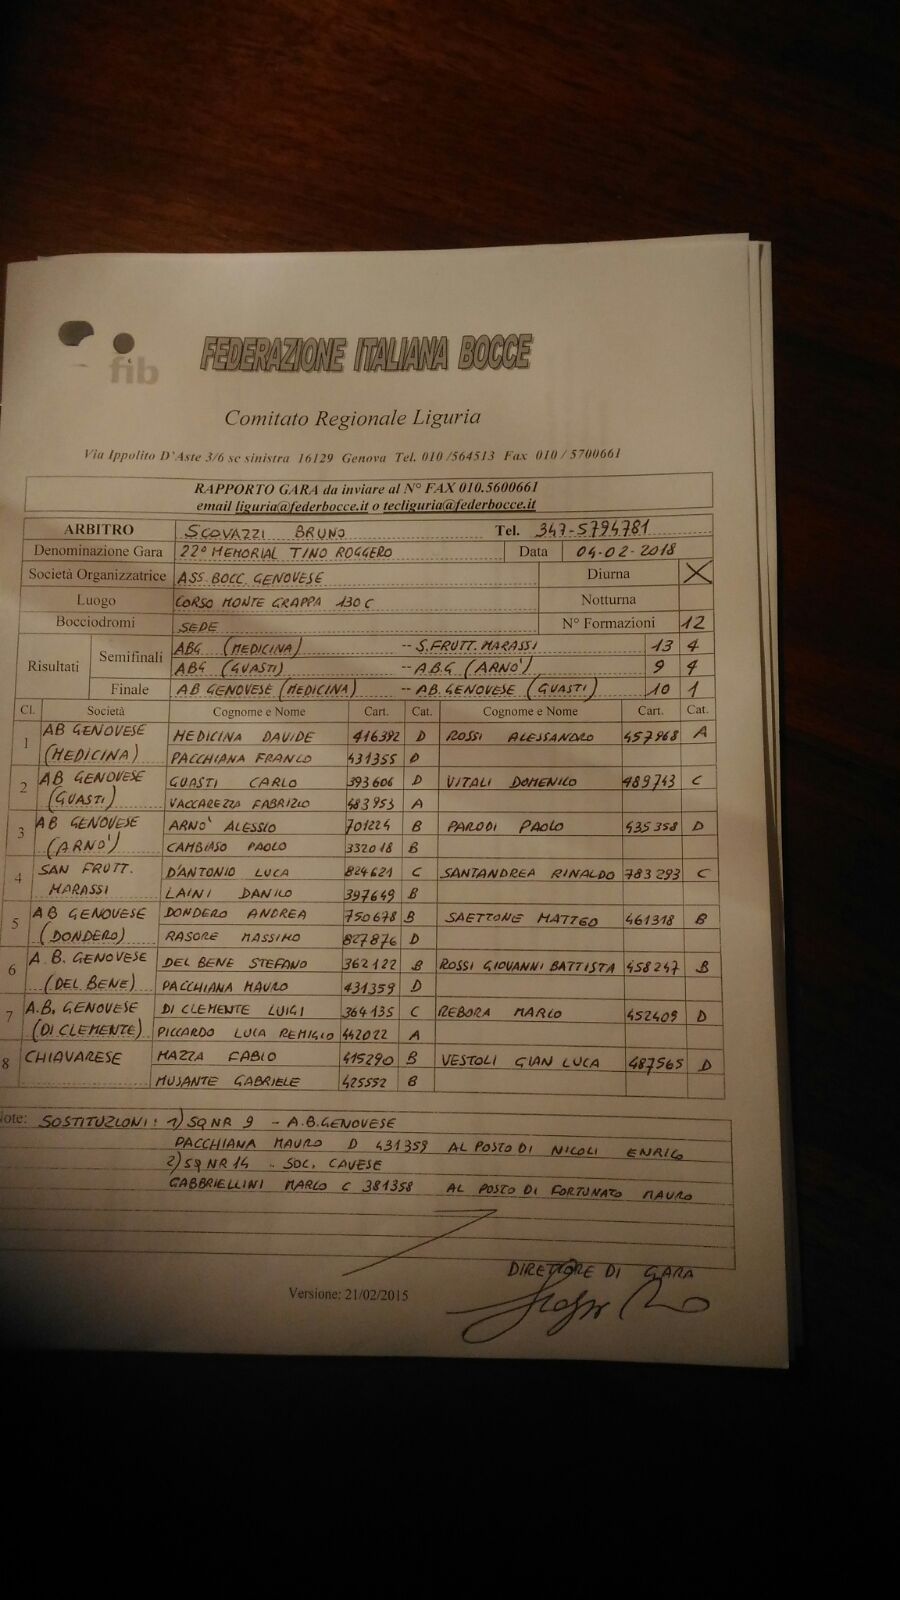 fib
FEDERAZIONE ITALIANA BOCCE
Comitato Regionale Liguria
Via Ippolito D'Aste 3/6 sc sinistra 16129 Genova Tel. 010 /564513 Fax 010 / 5700661
RAPPORTO GARA da inviare al N° FAX 010.5600661
email liguria@federbocce.it o tecliguria@federbocce.it
ARBITRO SCOVAZZI BRUNO Tel. 347-5794781
Denominazione Gara 22° MEMORIAL TINO ROGGERO Data 04-02-2018
Società Organizzatrice ASS. BOCC. GENOVESE Diurna X
Luogo CORSO MONTE GRAPPA 130 C Notturna
Bocciodromi SEDE N° Formazioni 12
Risultati Semifinali ABG (MEDICINA) -- S.FRUTT. MARASSI 13 4
ABG (GUASTI) -- A.B.G (ARNO') 9 4
Finale AB GENOVESE (MEDICINA) -- AB. GENOVESE (GUASTI) 10 1
Cl. Società Cognome e Nome Cart. Cat. Cognome e Nome Cart. Cat.
1 AB GENOVESE MEDICINA DAVIDE 416392 D ROSSI ALESSANDRO 457968 A
(MEDICINA) PACCHIANA FRANCO 431355 D
2 AB GENOVESE GUASTI CARLO 393606 D VITALI DOMENICO 489743 C
(GUASTI) VACCAREZZA FABRIZIO 483953 A
3 AB GENOVESE ARNO' ALESSIO 701224 B PARODI PAOLO 435358 D
(ARNO') CAMBIASO PAOLO 332018 B
4 SAN FRUTT. D'ANTONIO LUCA 824621 C SANTANDREA RINALDO 783293 C
MARASSI LAINI DANILO 397649 B
5 AB GENOVESE DONDERO ANDREA 750678 B SAETTONE MATTEO 461318 B
(DONDERO) RASORE MASSIMO 827876 D
6 A.B. GENOVESE DEL BENE STEFANO 362122 B ROSSI GIOVANNI BATTISTA 458247 B
(DEL BENE) PACCHIANA MAURO 431359 D
7 A.B. GENOVESE DI CLEMENTE LUIGI 364135 C REBORA MARCO 452409 D
(DI CLEMENTE) PICCARDO LUCA REMIGIO 442022 A
8 CHIAVARESE MAZZA FABIO 415290 B VESTOLI GIAN LUCA 487565 D
MUSANTE GABRIELE 425552 B
Note: SOSTITUZIONI: 1) SQ NR 9 - A.B.GENOVESE
PACCHIANA MAURO D 431359 AL POSTO DI NICOLI ENRICO
2) SQ NR 14 - SOC. CAVESE
GABBRIELLINI MARCO C 381358 AL POSTO DI FORTUNATO MAURO
DIRETTORE DI GARA
Versione: 21/02/2015